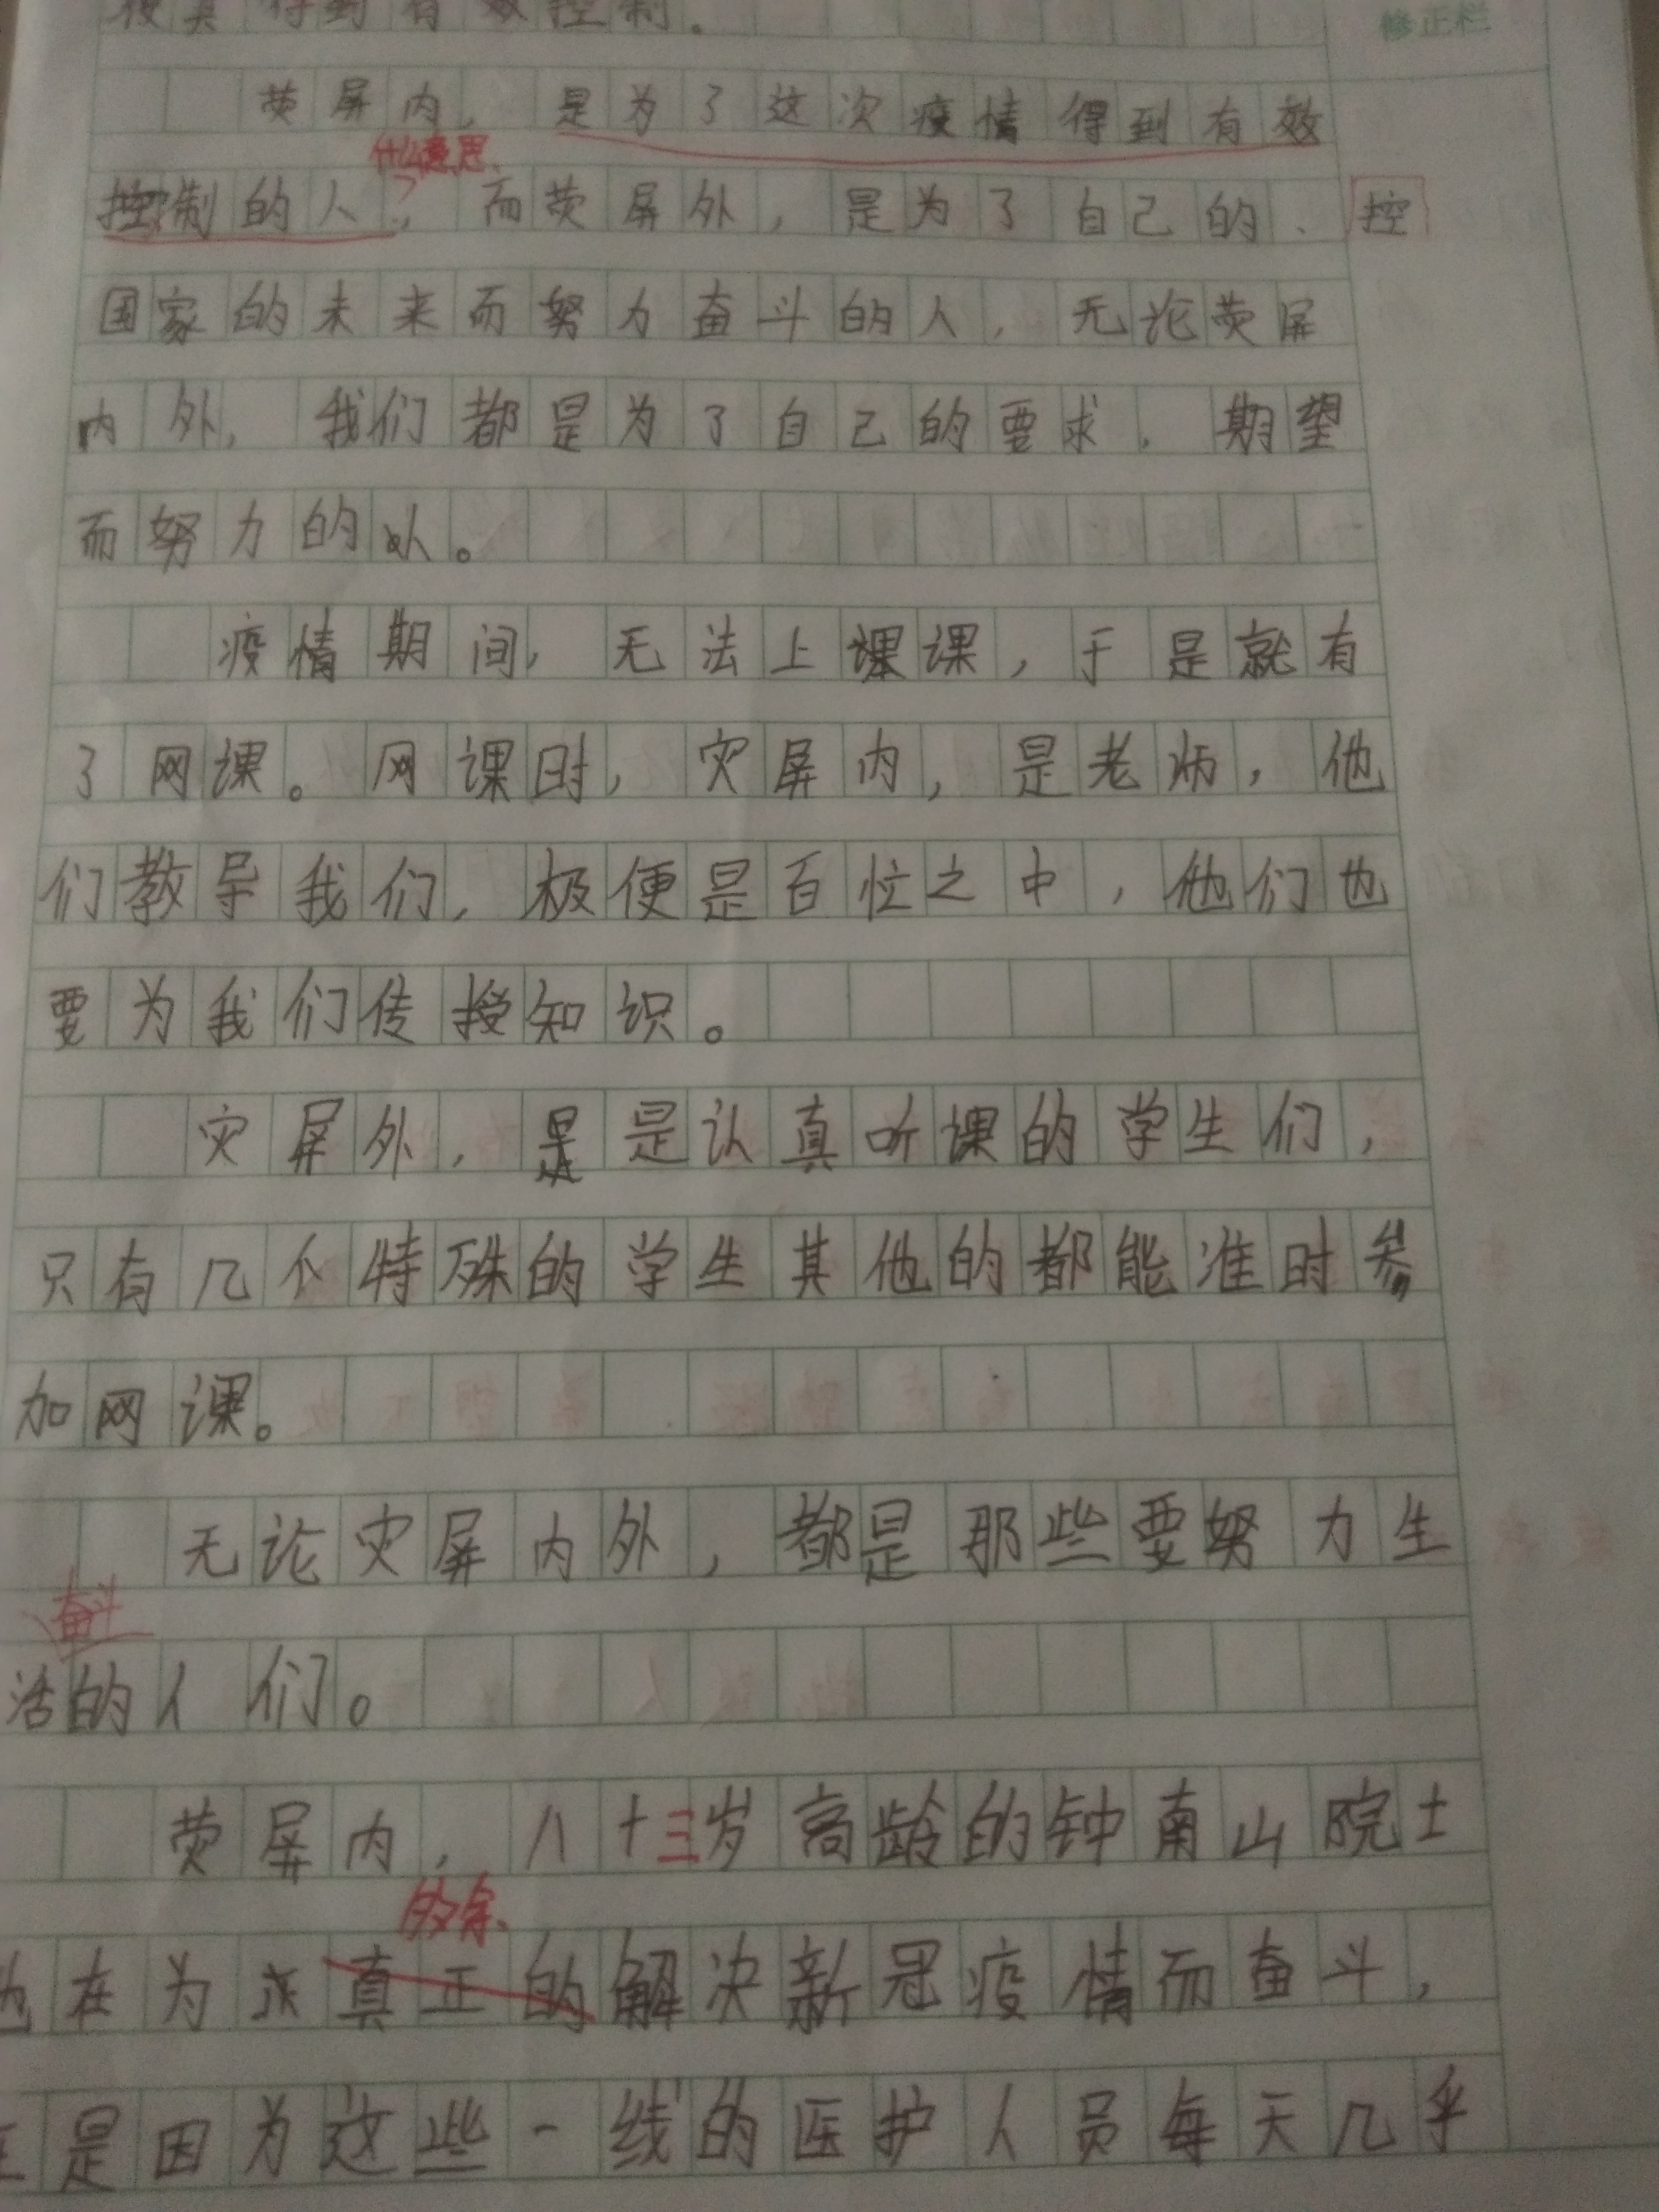 得到有效控制。
修正栏
荧屏内，是为了这次疫情得到有效
什么意思、
控制的人？，而荧屏外，是为了自己的、
控
国家的未来而努力奋斗的人，无论荧屏
内外，我们都是为了自己的要求，期望
而努力的人。
疫情期间，无法上课课，于是就有
了网课。网课时，灾屏内，是老师，他
们教导我们，极便是百忙之中，他们也
要为我们传授知识。
灾屏外，是是认真听课的学生们，
只有几个特殊的学生其他的都能准时参
加网课。
无论灾屏内外，都是那些要努力生
奋斗
活的人们。
荧屏内，八十三岁高龄的钟南山院士
多余、
他在为真正的解决新冠疫情而奋斗，
正是因为这些一线的医护人员每天几乎